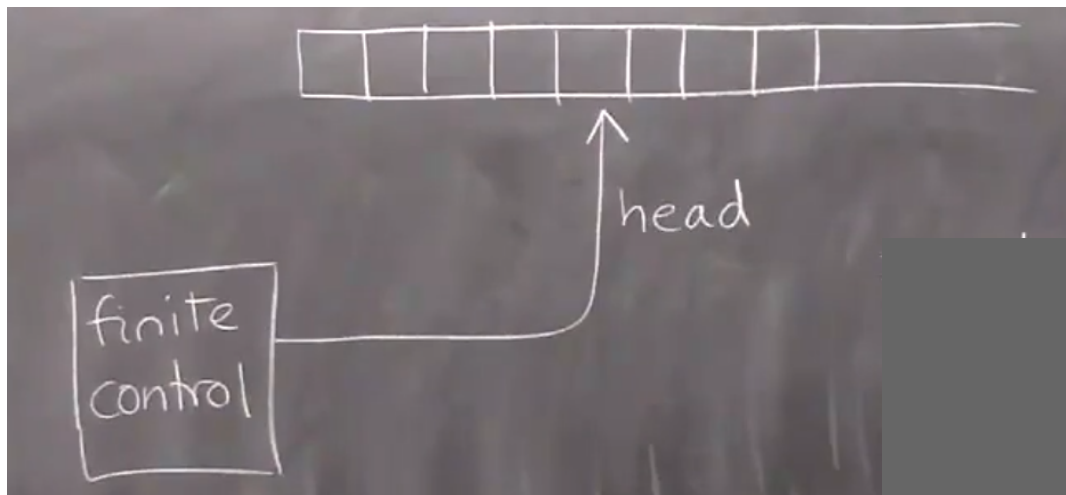 head
finite
control